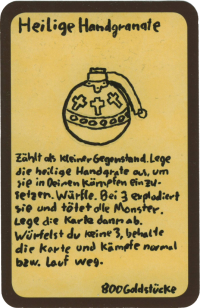 Heilige Handgranate
Zählt als kleiner Gegenstand. Lege
die heilige Handgrate aus, um
sie in Deinen Kämpfen einzu-
setzen. Würfle. Bei 3 explodiert
sie und tötet alle Monster.
Lege die Karte dann ab.
Würfelst du keine 3, behalte
die Karte und kämpfe normal
bzw. lauf weg.
800 Goldstücke